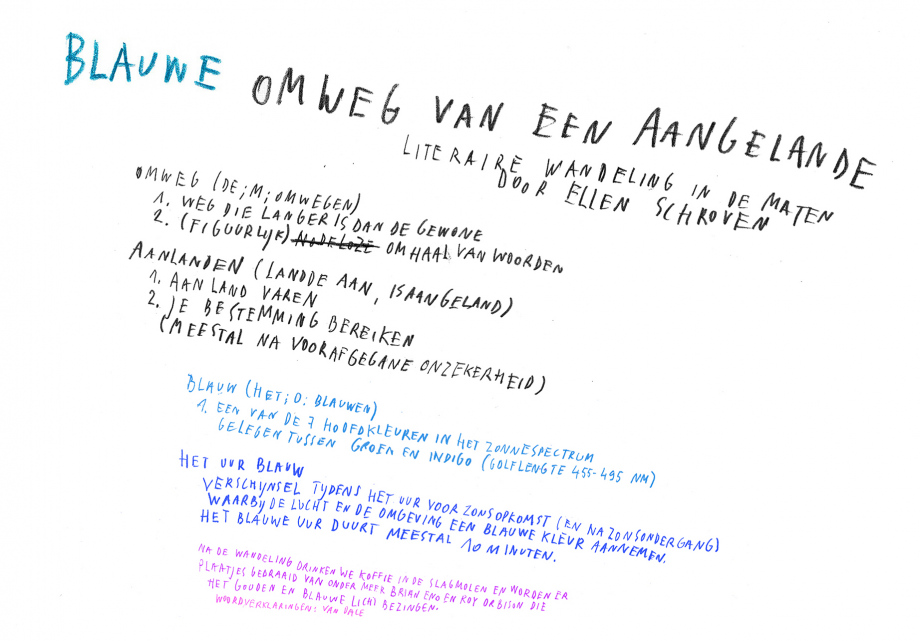 BLAUWE OMWEG VAN EEN AANGELANDE
LITERAIRE WANDELING IN DE MATEN
DOOR ELLEN SCHROVEN
OMWEG (DE; M; OMWEGEN)
1. WEG DIE LANGER IS DAN DE GEWONE
2. (FIGUURLIJK) NODELOZE OMHAAL VAN WOORDEN
AANLANDEN (LANDDE AAN, IS AANGELAND)
1. AAN LAND VAREN
2. JE BESTEMMING BEREIKEN
(MEESTAL NA VOORAFGEGANE ONZEKERHEID)
BLAUW (HET; O: BLAUWEN)
1. EEN VAN DE 7 HOOFDKLEUREN IN HET ZONNESPECTRUM
GELEGEN TUSSEN GROEN EN INDIGO (GOLFLENGTE 455-495 NM)
HET UUR BLAUW
VERSCHIJNSEL TIJDENS HET UUR VOOR ZONSOPKOMST (EN NA ZONSONDERGANG)
WAARBIJ DE LUCHT EN DE OMGEVING EEN BLAUWE KLEUR AANNEMEN.
HET BLAUWE UUR DUURT MEESTAL 10 MINUTEN.
NA DE WANDELING DRINKEN WE KOFFIE IN DE SLAGMOLEN EN WORDEN ER
PLAATJES GEDRAAID VAN ONDER MEER BRIAN ENO EN ROY ORBISON DIE
HET GOUDEN EN BLAUWE LICHT BEZINGEN.
WOORDVERKLARINGEN: VAN DALE